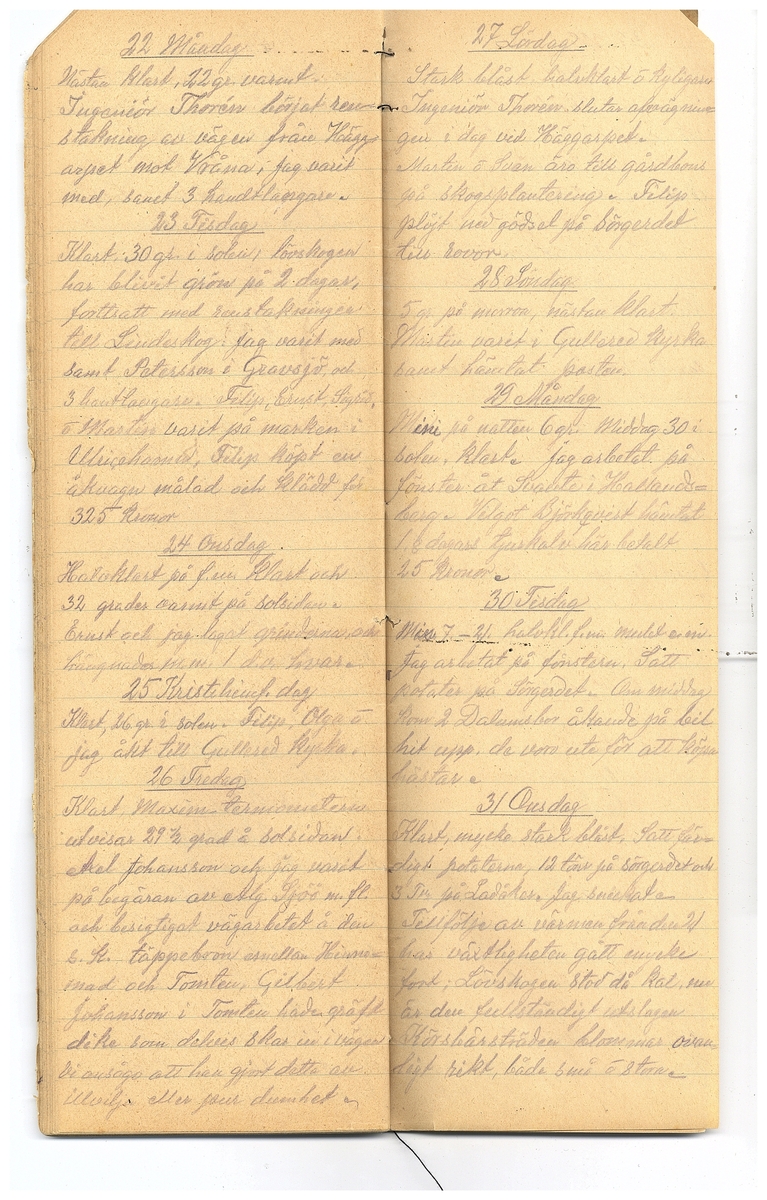 22 Måndag
Nästan klart, 22 gr. varmt.
Ingeniör Thorén börjat ren=
stakning av vägen från Hägg=
arpet mot Vråna; jag varit
med, samt 3 handtlangare.
23 Tisdag
Klart, 30 gr. i solen; lövskogen
har blivit grön på 2 dagar,
fortsatt med renstakningen
till Lindeskog; jag varit med
samt Petersson i Gravsjö, och
3 hantlangare. Filip, Ernst, Sigrid,
o Martin varit på marken i
Ulricehamn, Filip köpt en
åkvagn målad och klädd för
325 kronor
24 Onsdag
Halvklart på f.m. klart och
32 grader varmt på solsidan.
Ernst och jag lagat grinderna och
hängnader m.m. 1 d.v. hvar.
25 Kristihimf. dag
Klart, 26 gr. i solen. Filip, Olga o
jag åkt till Gullered kyrka.
26 Fredag
Klart, Maxim. termometern
utvisar 29 ½ grad å solsidan.
Axel Johansson och jag varit
på begäran av Alg. Sjöö m. fl.
och besigtigat vägarbetet å den
s. k. täppebron emellan Hinne=
mad och Tomten, Gilbert
Johansson i Tomten hade gräft
dike som delvis skar in i vägen
Vi ansågo att han gjort detta av
illvilje eller pur dumhet.
27 Lördag
Stark blåst, halvklart o kyligare
Ingeniör Thorén slutar avvägnin=
gen i dag ved Häggarpet.
Martin o Svan äro till gårdbons
på skogsplantering. Filip
plöjt ned gödsel på Sörgerdet
till rovor.
28 Söndag
5 gr. på morron, nästan klart.
Martin varit i Gullered kyrka
samt hämtat posten.
29 Måndag
Mini på natten 6 gr. Middag 30 i
solen, klart. Jag arbetat på
fönster åt Svante i Hallands=
berg. Velgot Björkqvist hämtat
18 dagars tjurkalv här betalt
25 kronor.
30 Tisdag
Min 7 – 21. halvkl. f.m. mulet e.m.
Jag arbetat på fönstern. Satt
potater på Sörgerdet. Om middag
kom 2 Dalumsbor åkande på bil
hit upp. de voro ute för att köpa
hästar.
31 Onsdag
Klart, mycke stark blåst. Satt fär=
digt potaterna, 12 tör på sörgerdet och
3 Tr. på Ladåker. Jag snickat.
Tillfölje av värmen från den 21
har växtligheten gått mycke
fort; Lövskogen stod då kal, nu
är den fullständigt utslagen
Körsbärsträden blommar ovan=
ligt rikt, både små o stora.